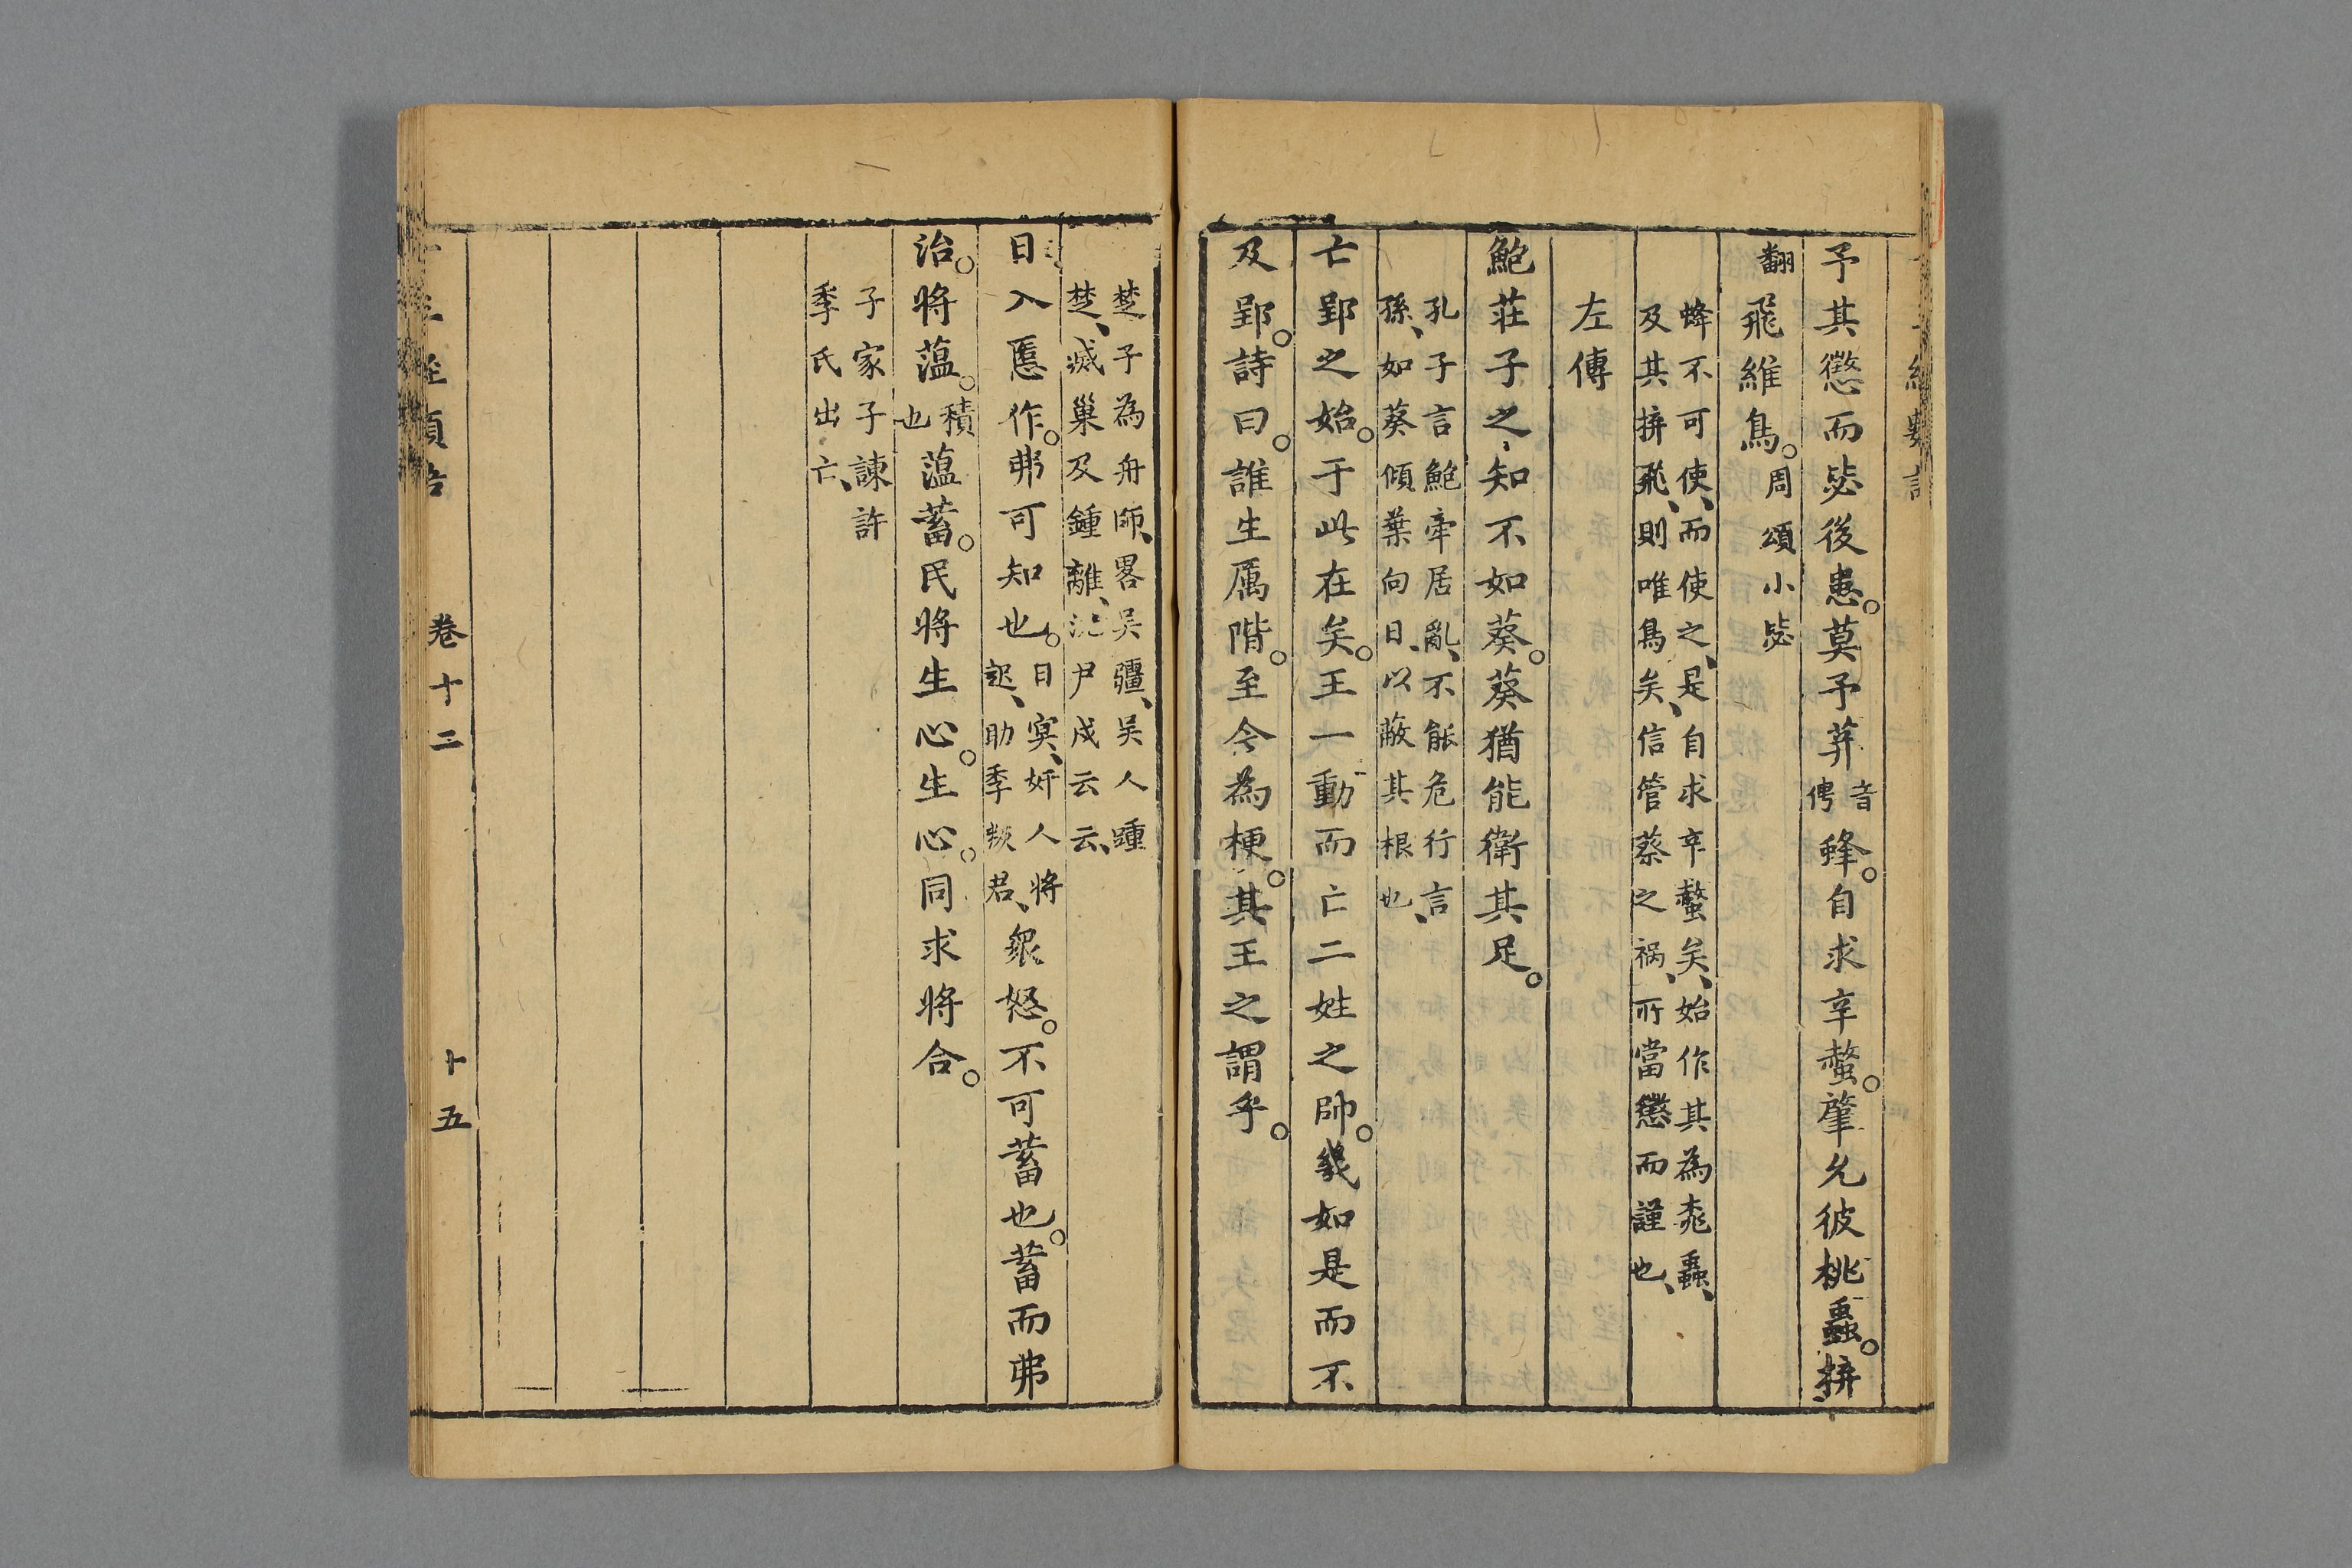 予其懲而毖後患。莫予荓音俜蜂。自求辛螫。肇允彼桃蟲。拚
翻飛維鳥。周頌小毖
蜂不可使、而使之、是自求辛螫矣、始作其為桃蟲、
及其拚飛、則唯鳥矣、信管蔡之禍、所當懲而謹也、
左傳
鮑莊子之知不如葵。葵猶能衛其足。
孔子言鮑牽居亂、不能危行言
孫、如葵傾葉向日、以蔽其根也、
亡郢之始。于此在矣。王一動而亡二姓之帥。幾如是而不
及郢。詩曰。誰生厲階。至今為梗。其王之謂乎。
楚子為舟師、畧吳疆、吳人踵
楚、滅巢及鍾離、沈尹戌云云、
日入慝作。弗可知也。日冥、奸人將起、助季叛君、衆怒。不可蓄也。蓄而弗
治。將薀。積也薀蓄。民將生心。生心。同求將合。
子家子諫許
季氏出亡、
卷十二
十五